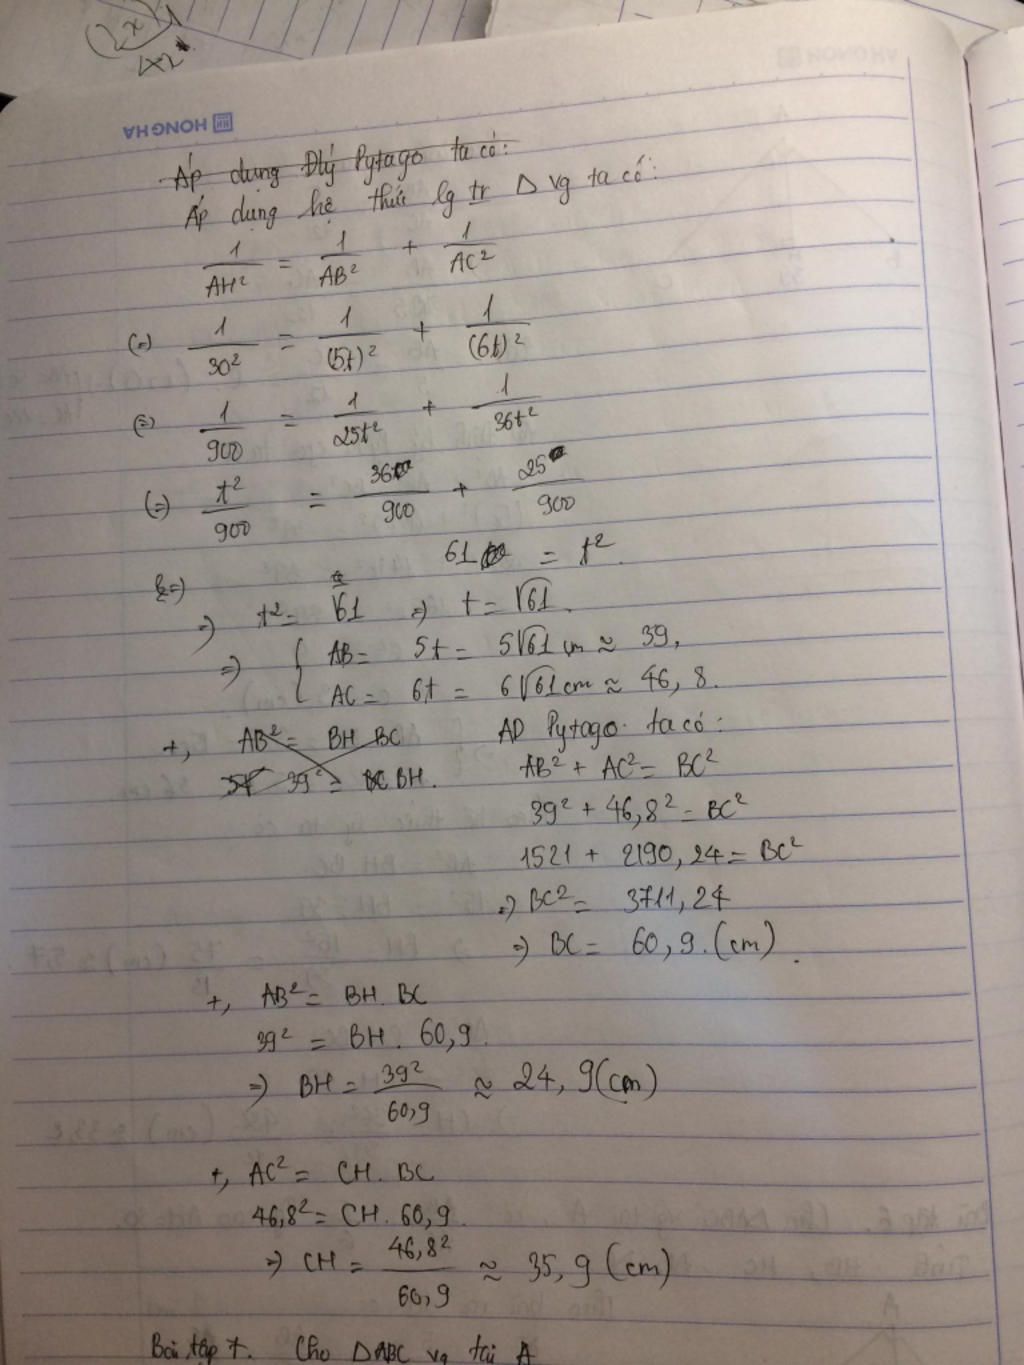 (2x)
42
HONGHA
Áp dụng Đlý Pytago ta có:
Áp dụng hệ thức lg tr Δ vg ta có:
1/AH² = 1/AB² + 1/AC²
(=) 1/30² = 1/(5t)² + 1/(6t)²
(=) 1/900 = 1/25t² + 1/36t²
(=) t²/900 = 36/900 + 25/900
61 = t²
=)
=) t² = √61 =) t = √61.
=) { AB = 5t = 5√61 cm ≈ 39,
AC = 6t = 6√61 cm ≈ 46,8.
+, AB² = BH BC
39² = BC BH.
AD Pytago ta có:
AB² + AC² = BC²
39² + 46,8² = BC²
1521 + 2190,24 = BC²
=) BC² = 3711,24
=) BC = 60,9.(cm).
+, AB² = BH. BC
39² = BH. 60,9.
=) BH = 39²/60,9 ≈ 24,9(cm)
+, AC² = CH. BC
46,8² = CH. 60,9.
=) CH = 46,8²/60,9 ≈ 35,9 (cm)
Bài tập 7. Cho ΔABC vg tại A